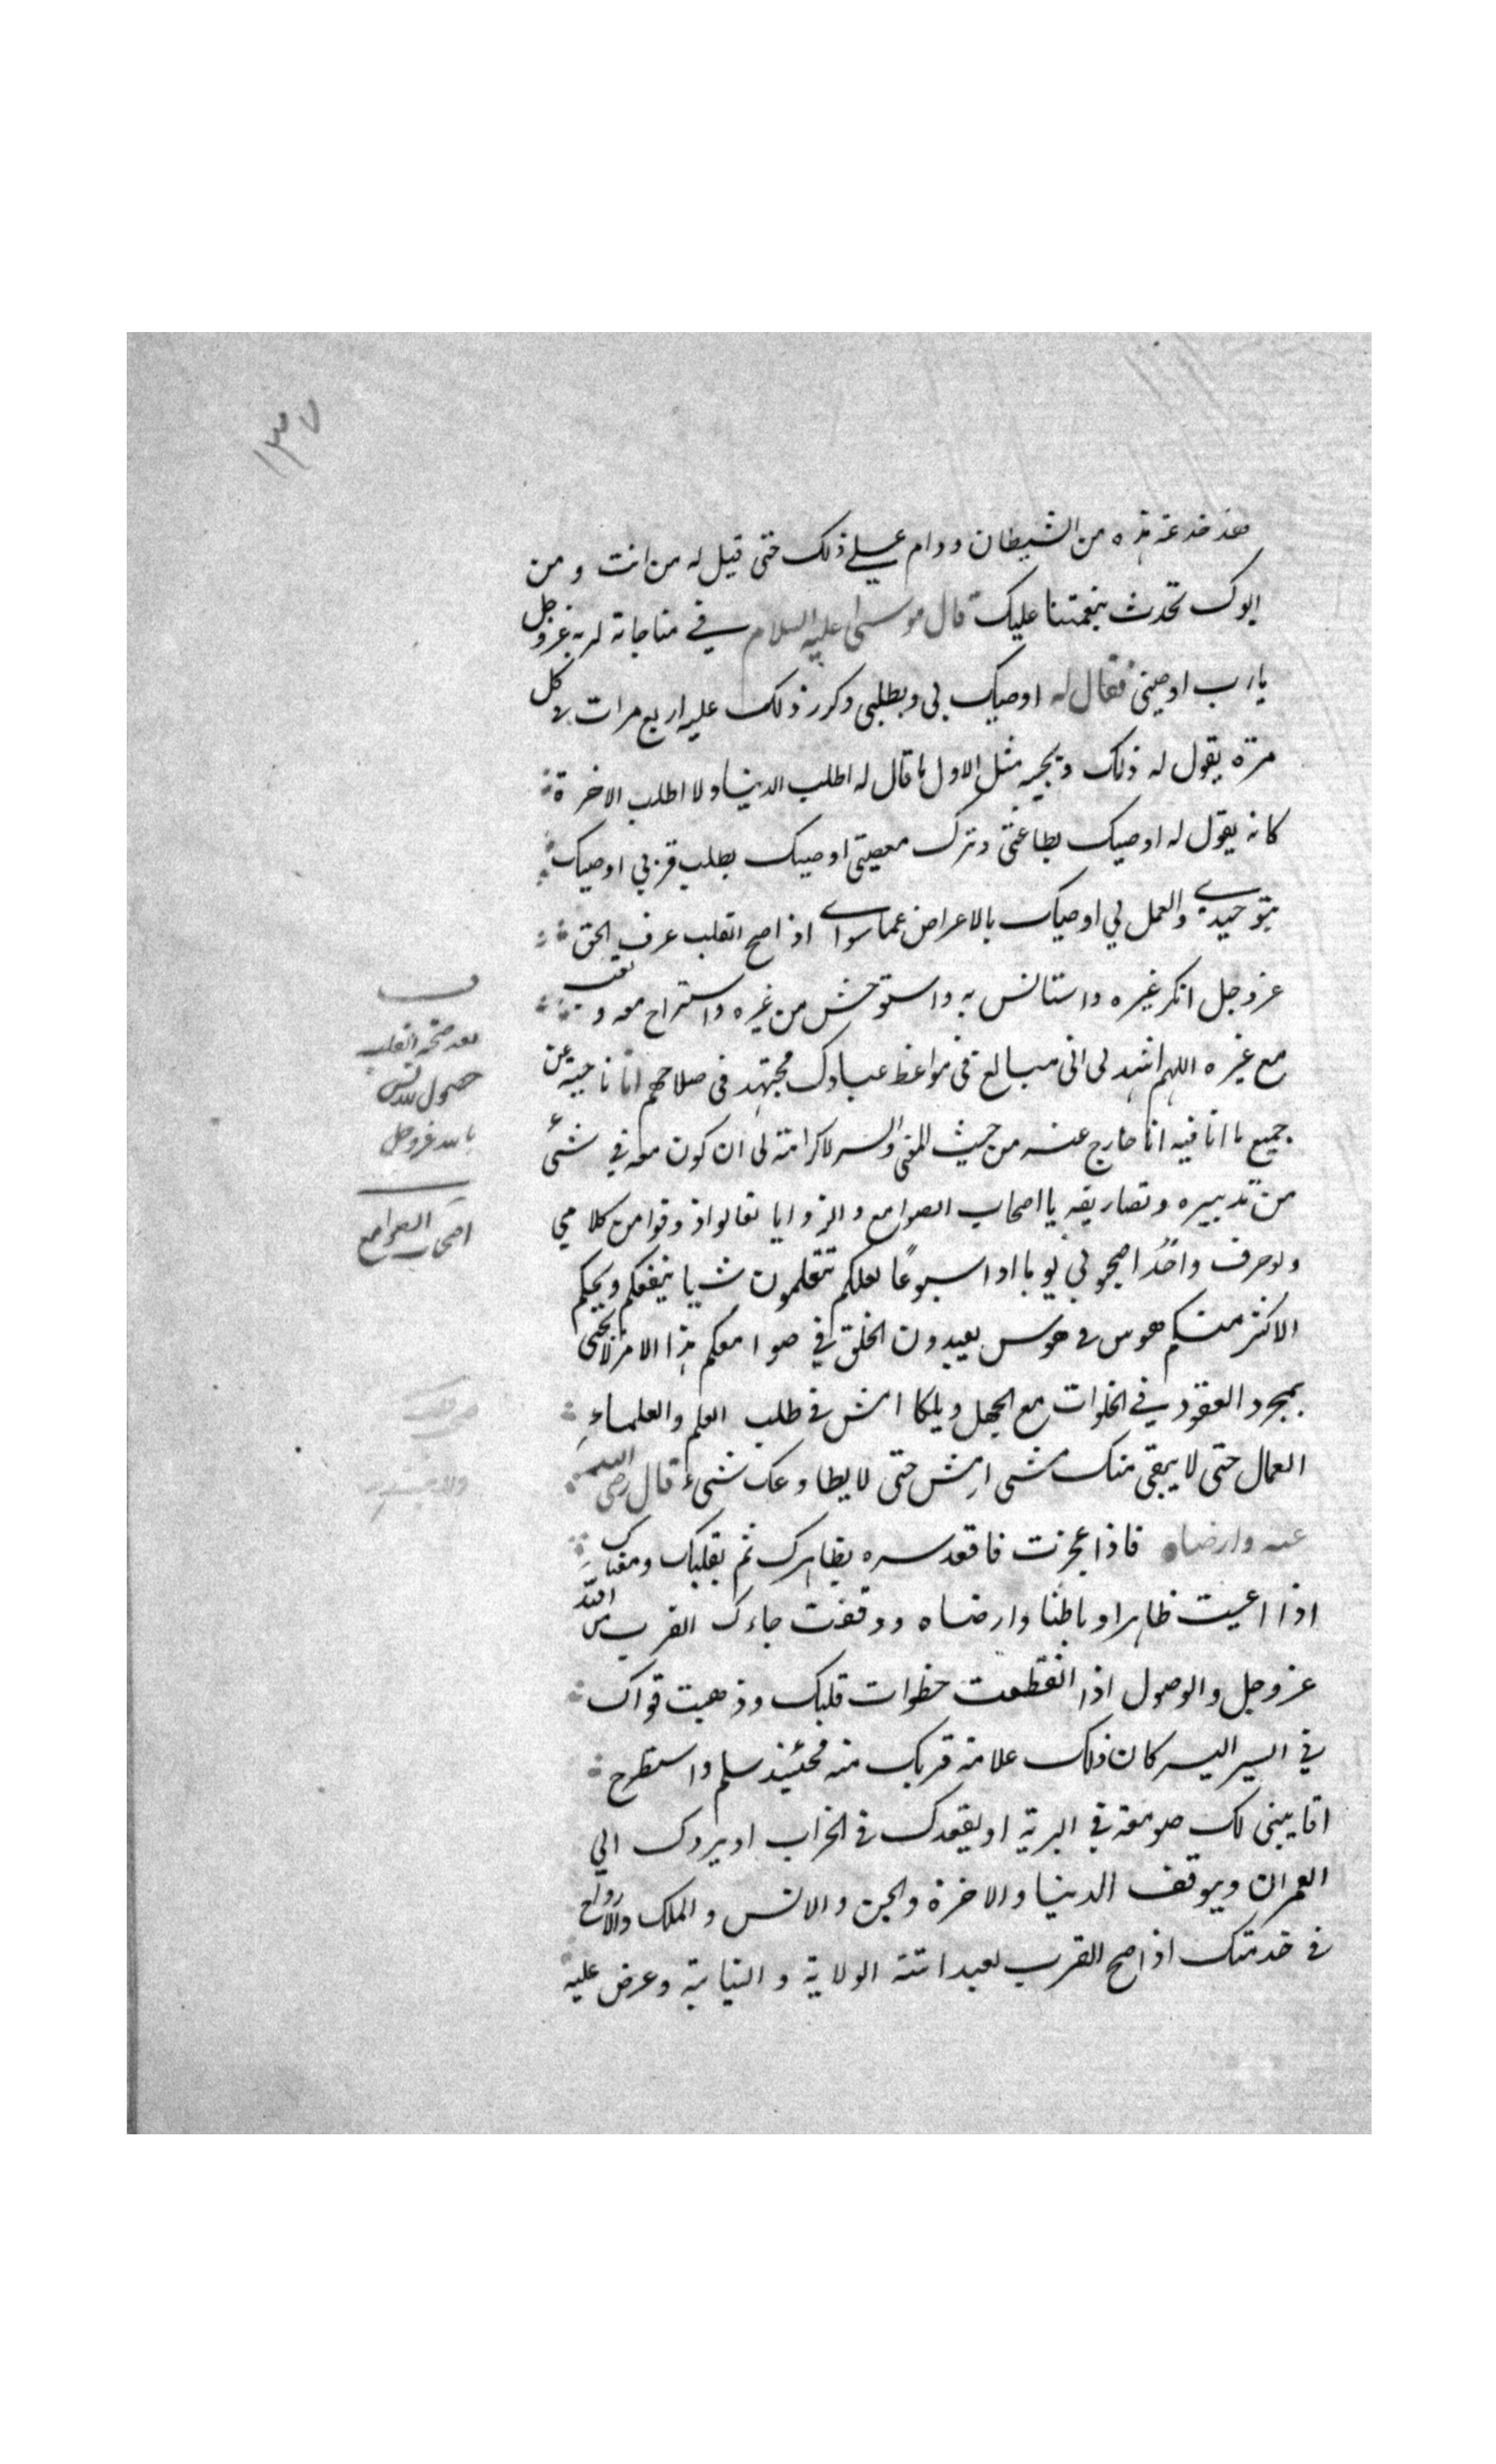 ١٣٧
فعد خدعة هذه من الشيطان ودام على ذلك حتى قيل له من انت ومن
ابوك تحدث بنعمتنا عليك قال موسى عليه السلام في مناجاته لربه عزوجل
يا رب اوصيني فقال له اوصيك بي وبطلبي وكرر ذلك عليه اربع مرات لا كل
مرة يقول له ذلك ويجيبه مثل الاول ما قال له اطلب الدنيا ولا اطلب الاخرة
كانه يقول له اوصيك بطاعتي وترك معصيتي اوصيك بطلب قربي اوصيك
بتوحيدي والعمل لي اوصيك بالاعراض عما سواي اذا صح القلب عرف الحق
عزوجل انكر غيره واستانس به واستوحش من غيره واستراح معه وتعب
مع غيره اللهم اشهد لي اني مبالغ في مواعظ عبادك مجتهد في صلاحهم انا ناحية عن
جميع ما انا فيه انا خارج عنه من حيث المعنى والسر لا كرامة لي ان كون معه في شئ
من تدبيره وتصاريفه يا اصحاب الصوامع والزوايا تعالوا ذوقوا من كلامي
ولو حرف واحدا اصحبوني يوما او اسبوعًا لعلكم تتعلمون شيا ينفعكم ويحكم
الاكثر منكم هوس في هوس يعبدون الخلق في صوامعكم هذا الامر لا يجئ
بمجرد العقود في الخلوات مع الجهل ويلك امش في طلب العلم والعلماء
العمال حتى لا يبقى منك مشى امش حتى لا يطاوعك شئ قال رضي الله
عنه وارضاه فاذا عجزت فاقعد سره بظاهرك ثم بقلبك ومعناك
اذا اعييت ظاهرا وباطنا وارضاه ووقفت جاءك القرب من الله
عزوجل والوصول اذا انقطعت خطوات قلبك وذهبت قواك
في السير اليه كان ذلك علامة قربك منه فحينئذ سلم واستطرح
اما يبنى لك صومعة في البرية او يقعدك في الخراب او يردك الي
العمران ويوقف الدنيا والاخرة والجن والانس والملك والارواح
في خدمتك اذا صح القرب لعبد اتته الولاية والنيابة وعرض عليه
ف
بعد صحة القلب
حصول الانس
بالله عزوجل
اصحاب الصوامع